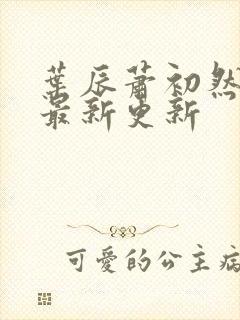 葉辰蕭初然
最新更新
可愛的公主病